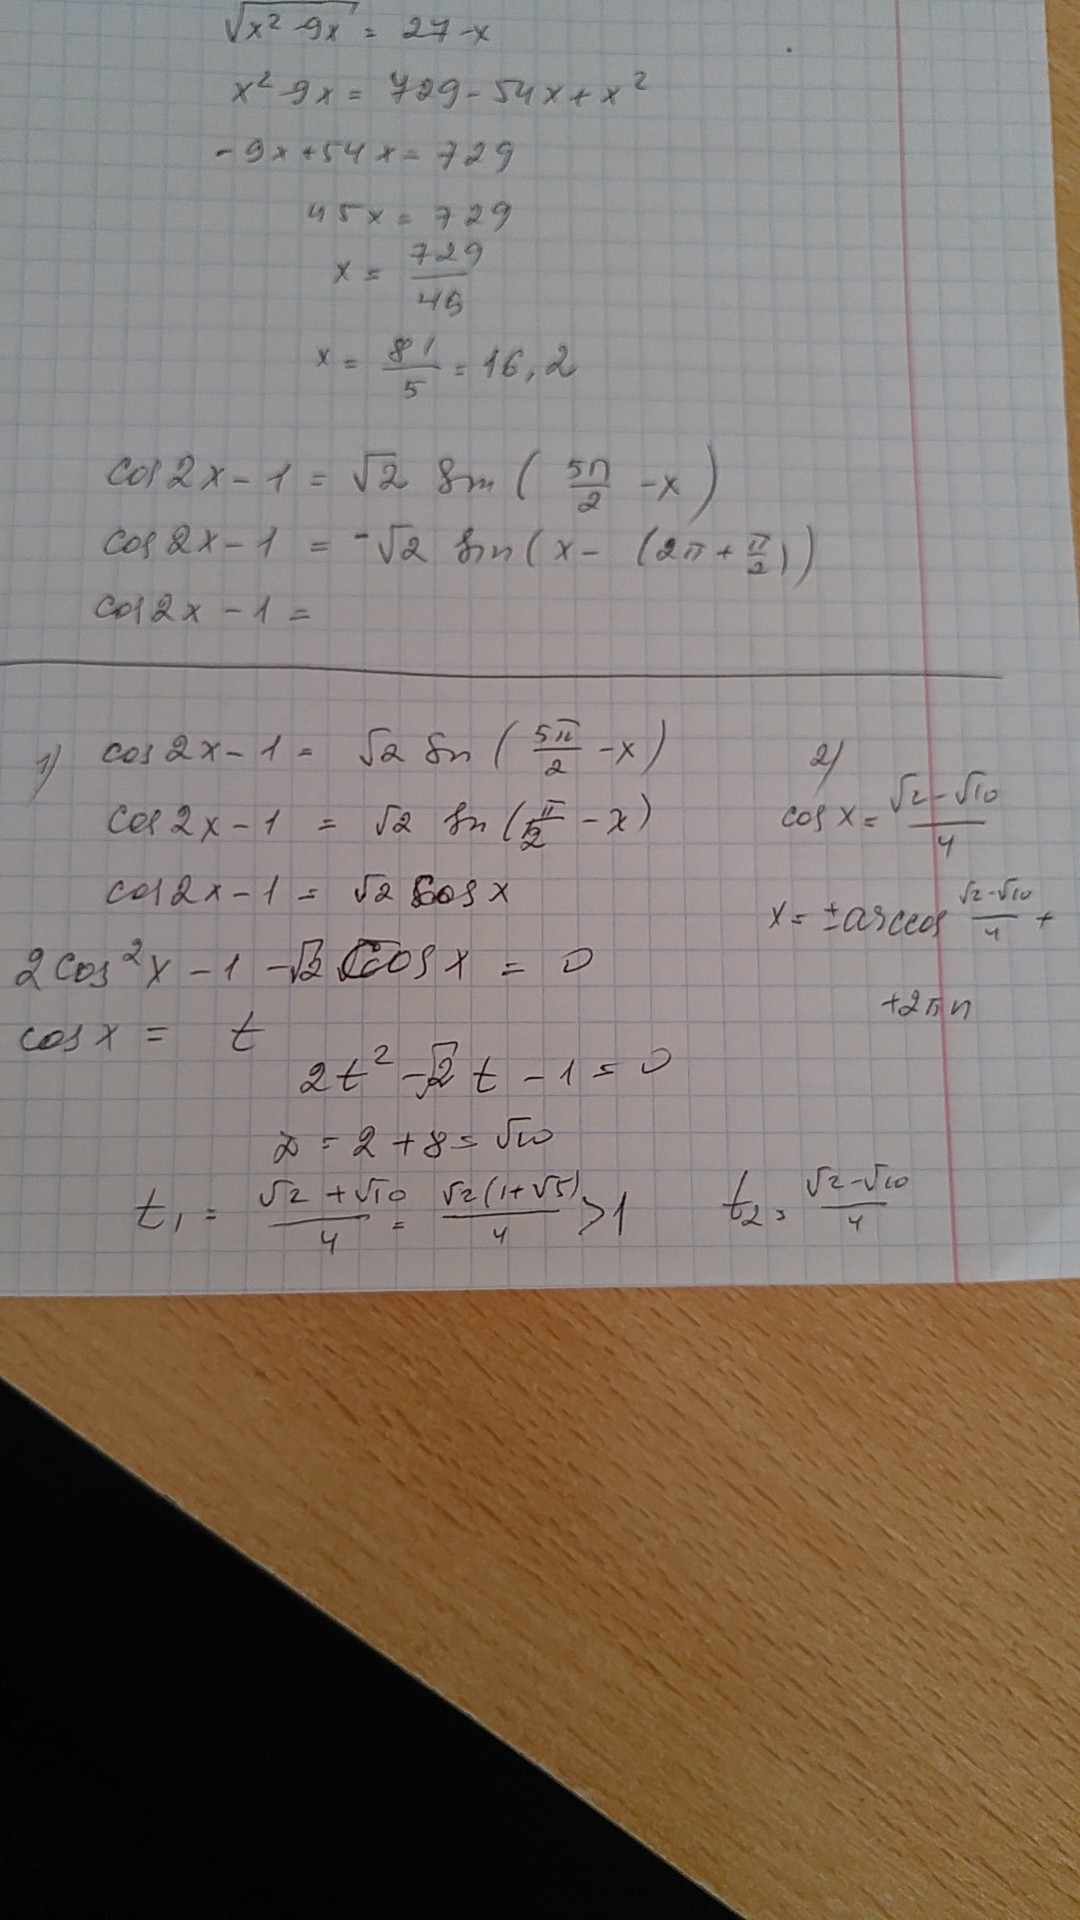 √(x² - 9x) = 27 - x
x² - 9x = 729 - 54x + x²
-9x + 54x = 729
45x = 729
x = 729/45
x = 81/5 = 16,2
cos 2x - 1 = √2 sin (5π/2 - x)
cos 2x - 1 = -√2 sin (x - (2π + π/2))
cos 2x - 1 =
1) cos 2x - 1 = √2 sin (5π/2 - x)
cos 2x - 1 = √2 sin (π/2 - x)
cos 2x - 1 = √2 cos x
2 cos² x - 1 - √2 cos x = 0
cos x = t
2t² - √2 t - 1 = 0
D = 2 + 8 = √10
t₁ = (√2 + √10)/4 = √2(1 + √5)/4 > 1
t₂ = (√2 - √10)/4
2)
cos x = (√2 - √10)/4
x = ± arccos (√2 - √10)/4 +
+ 2πn